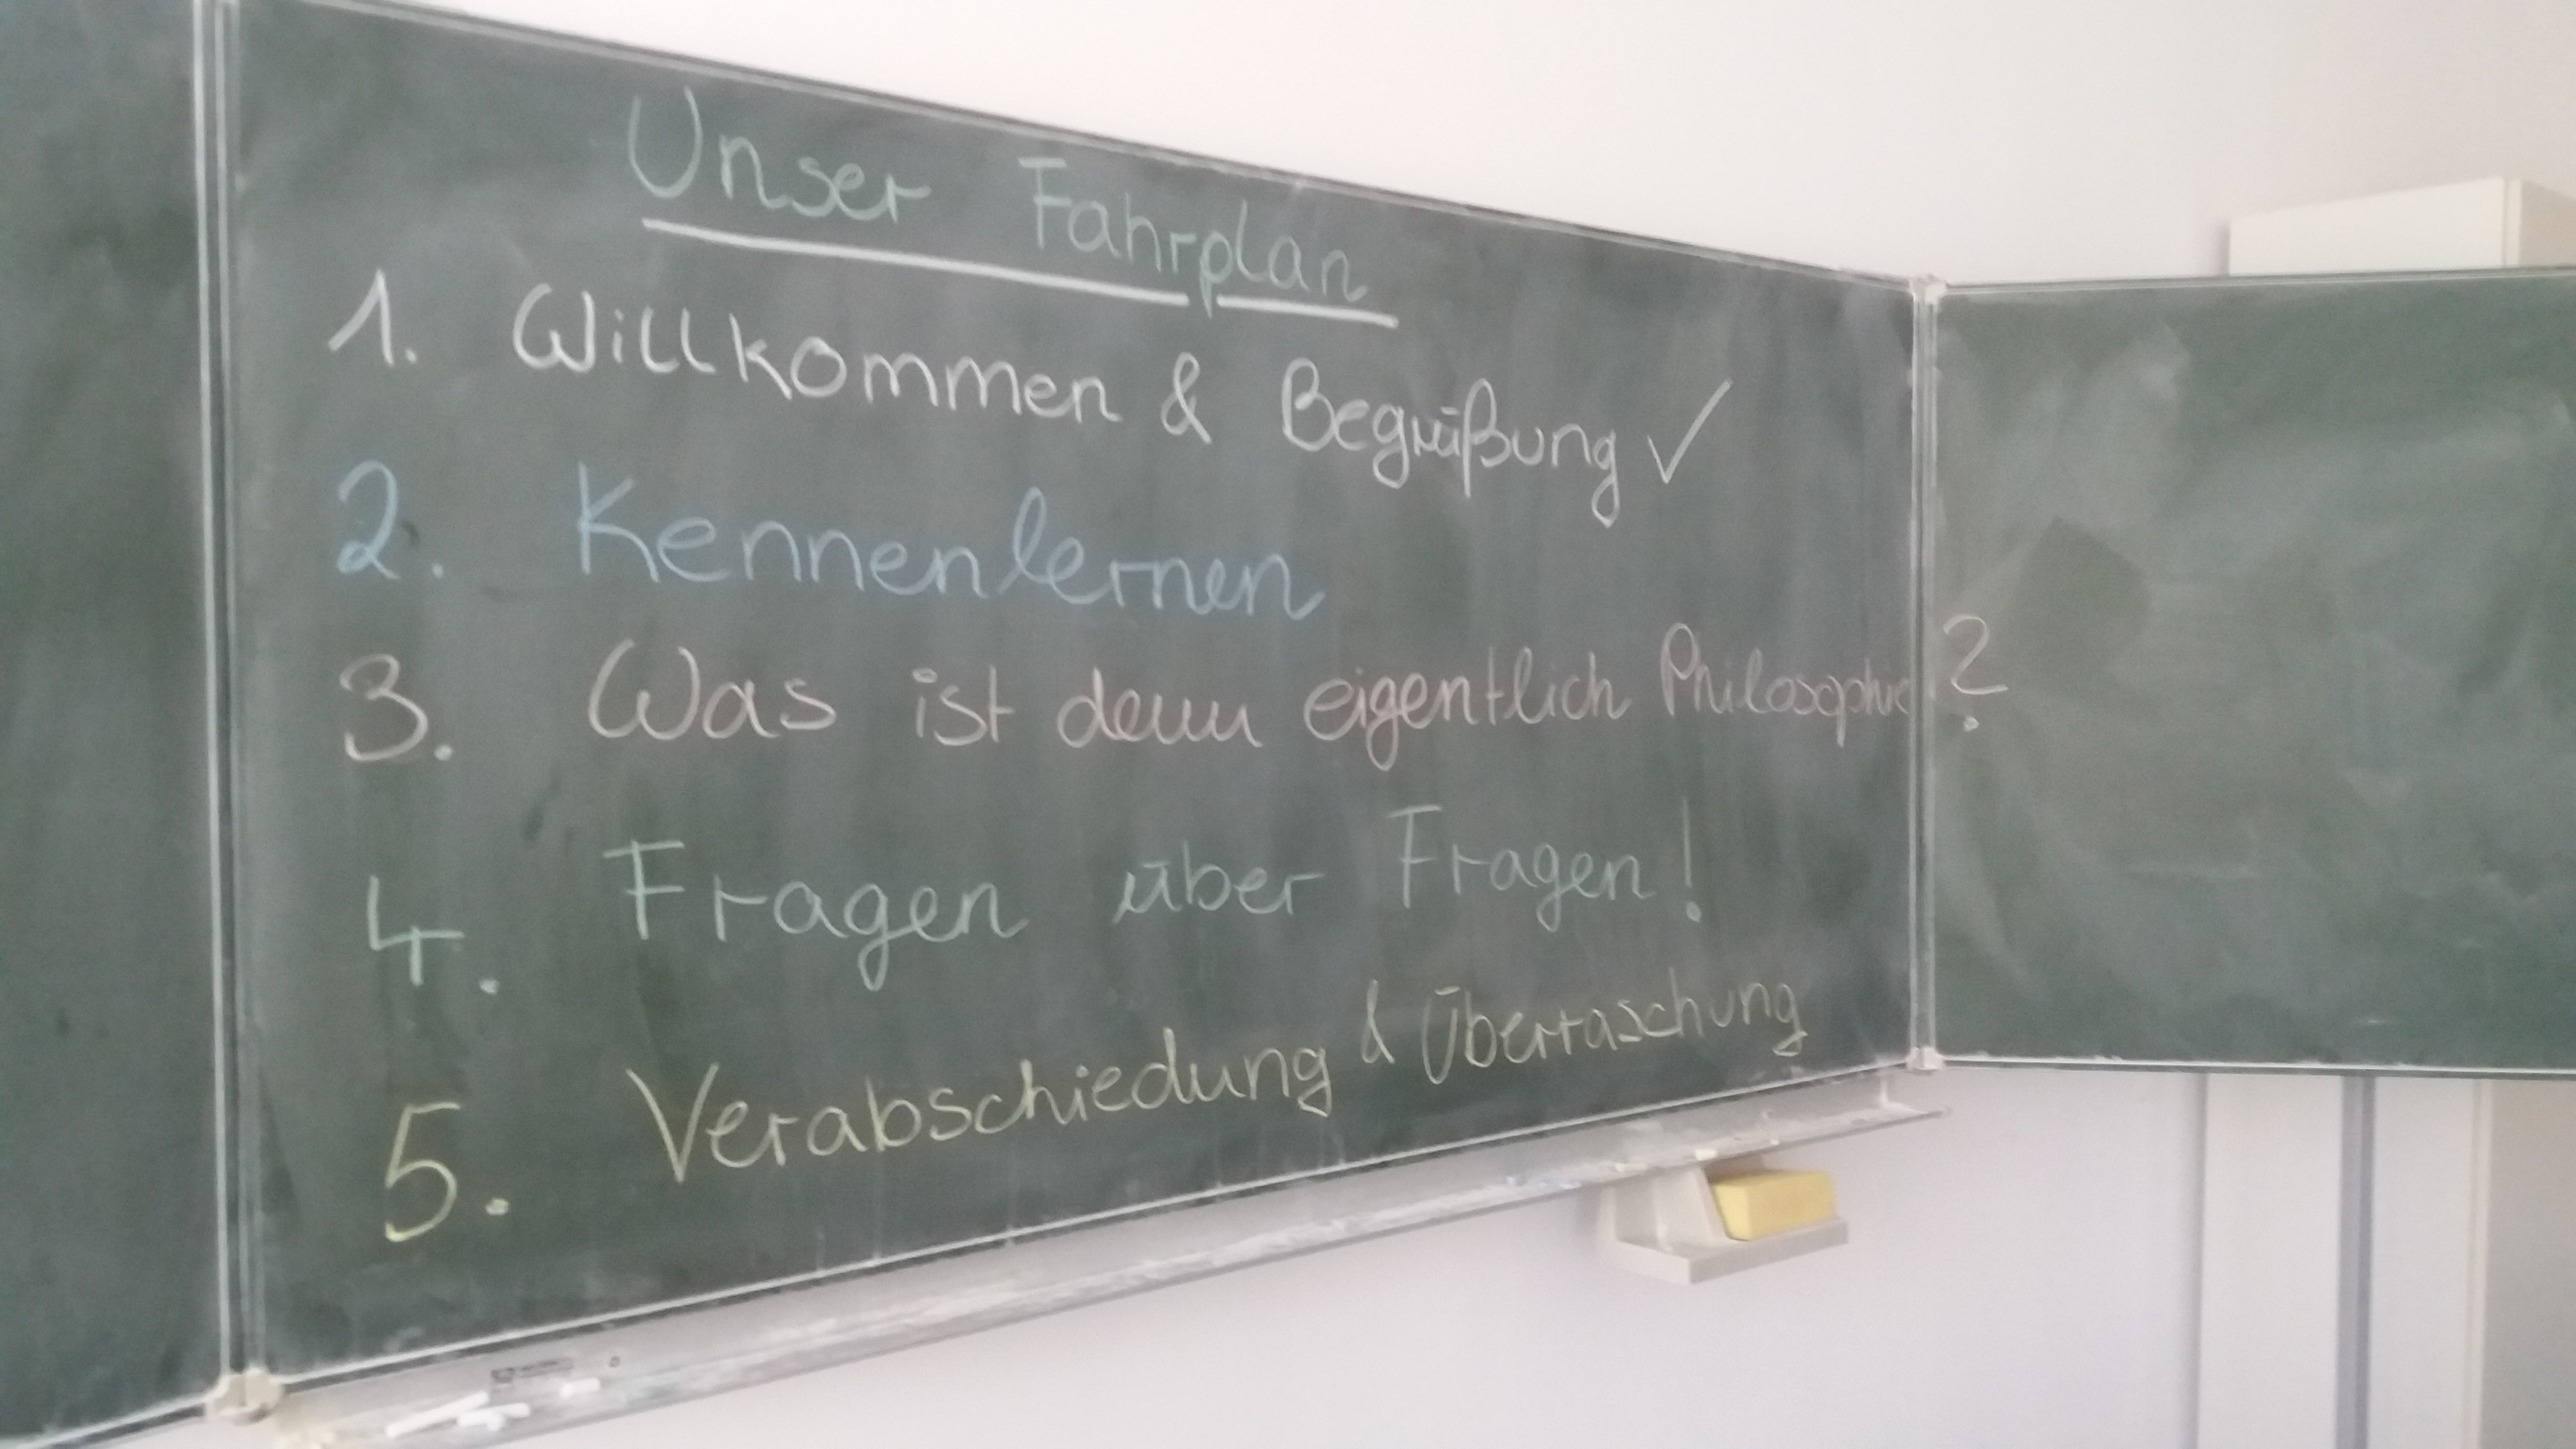 Unser Fahrplan
1. Willkommen & Begrüßung ✓
2. Kennenlernen
3. Was ist denn eigentlich Philosophie?
4. Fragen über Fragen!
5. Verabschiedung & Überraschung